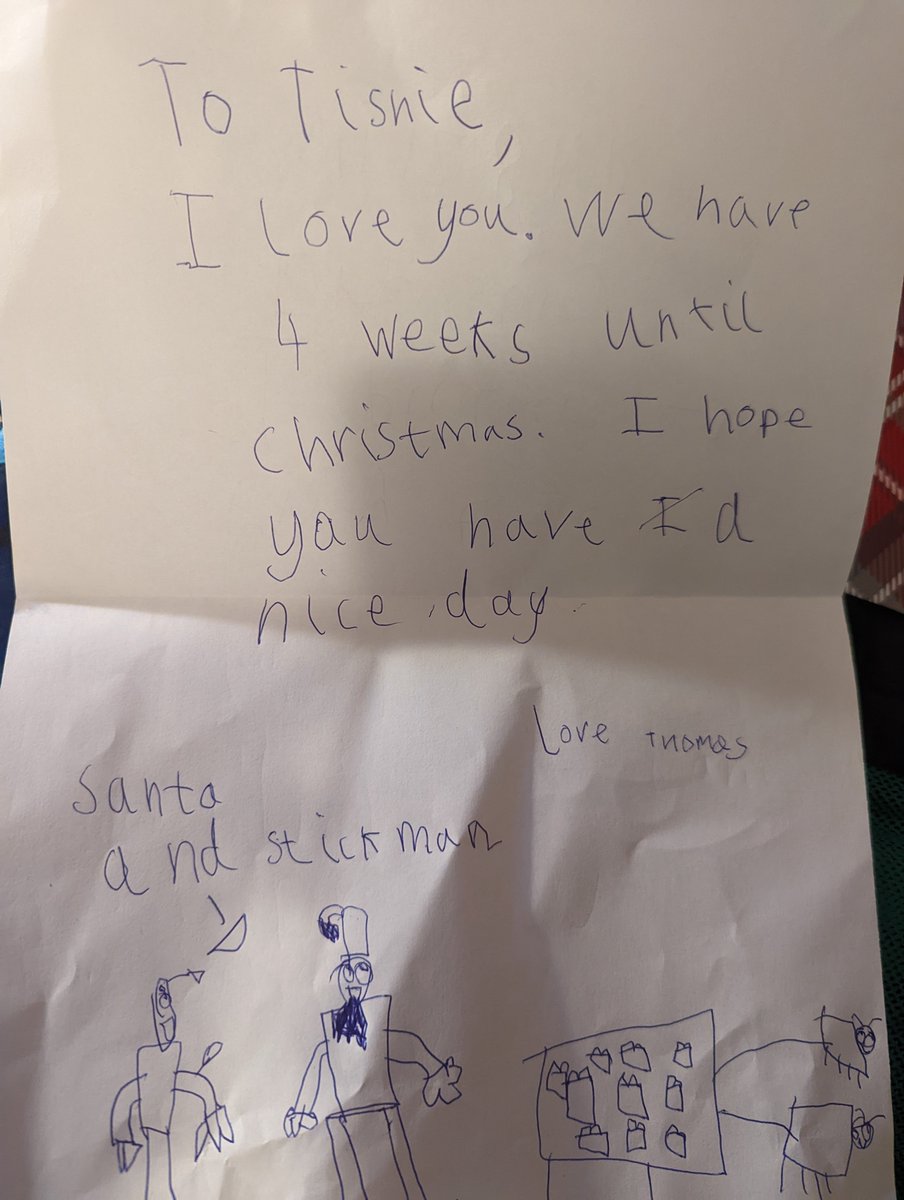 To Tisnie,
I love you. We have
4 weeks until
christmas. I hope
yau have a
nice day.
Love Thomas
Santa
and stickman